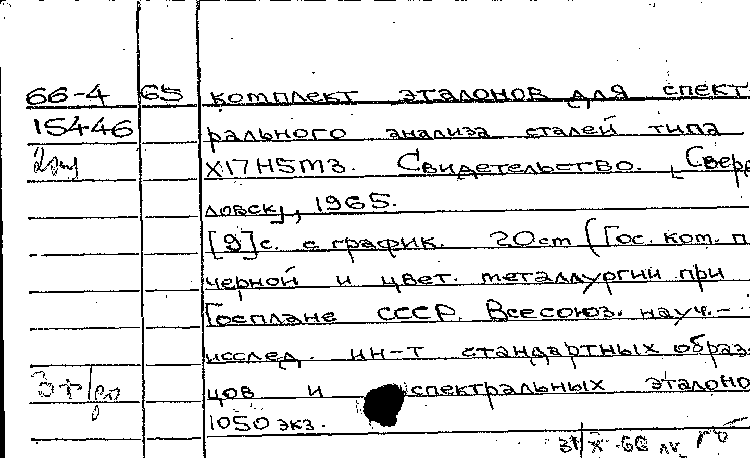 66-4 65 комплект эталонов для спект
15446 рального анализа сталей типа
Х17Н5М3. Свидетельство. [Сверд
ловск], 1965.
[9]с. с график. 20см (Гос. ком. п
черной и цвет. металлургии при
Госплане СССР. Всесоюз. науч.-
исслед. ин-т стандартных образ-
цов и спектральных эталоно
1050 экз.